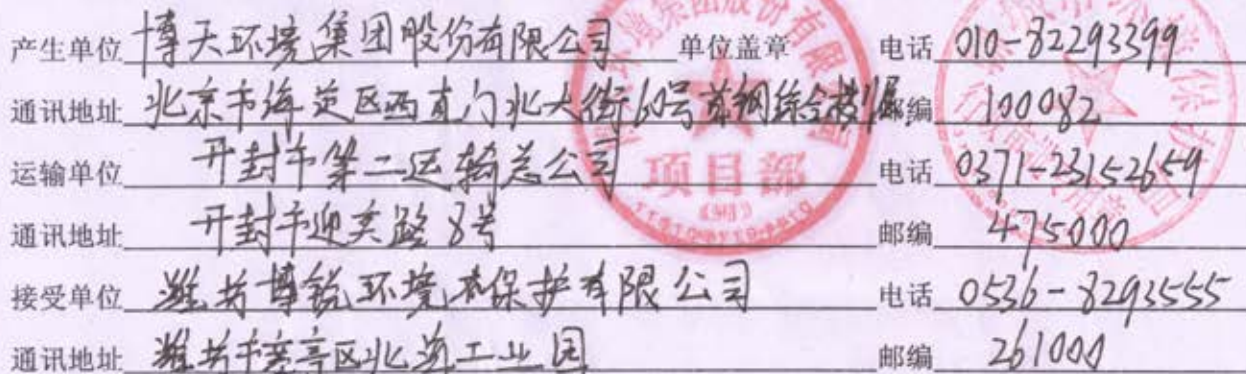 产生单位 博天环境集团股份有限公司 单位盖章 电话 010-82293399
通讯地址 北京市海淀区西直门北大街60号首钢综合楼 邮编 100082
运输单位 开封市第二运输总公司 电话 0371-23152659
通讯地址 开封市迎宾路8号 邮编 475000
接受单位 潍坊博锐环境保护有限公司 电话 0536-8293555
通讯地址 潍坊市寒亭区北海工业园 邮编 261000
项目部